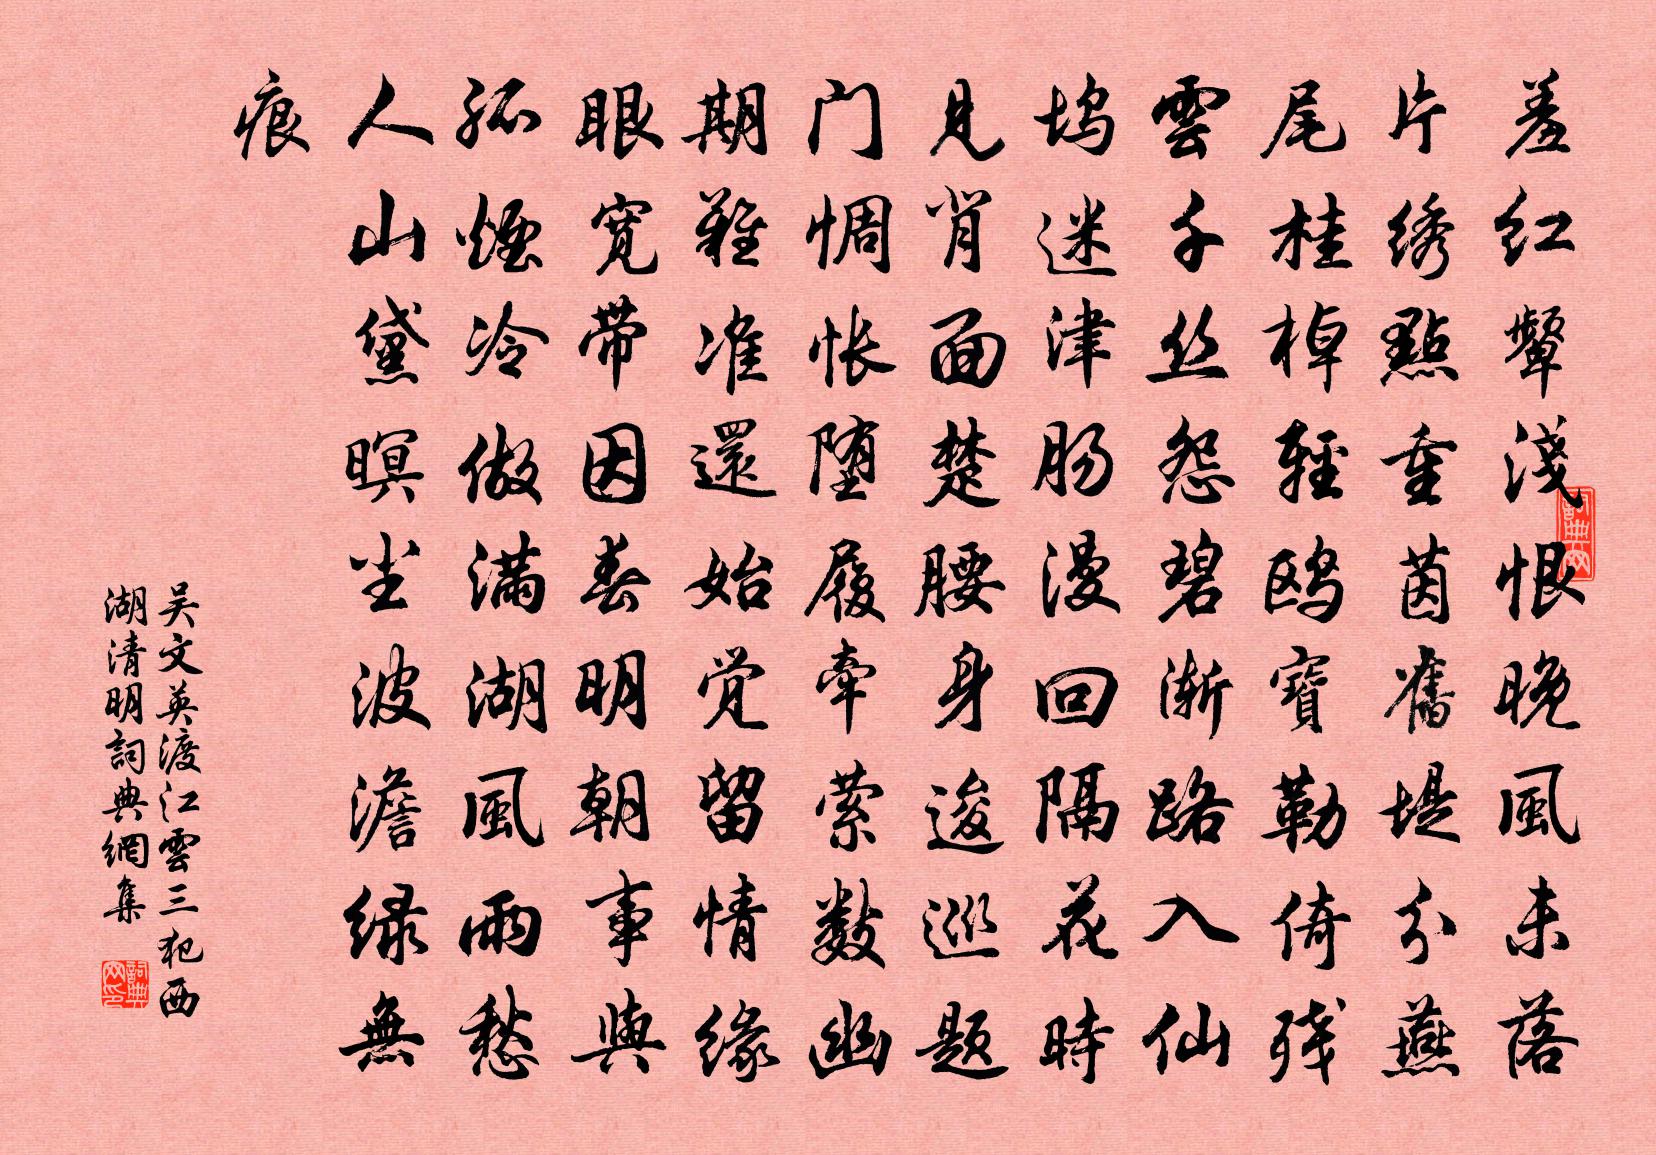 羞红颦淺恨晚風未落
片绣點重茵舊堤分燕
尾桂棹轻鸥寳勒倚残
雲千丝怨碧渐路入仙
坞迷津肠漫回隔花時
見背面楚腰身逡巡题
门惆怅堕履牵萦数幽
期難准還始觉留情缘
眼宽带因春明朝事與
孤煙冷做满湖風雨愁
人山黛暝尘波澹绿無
痕
吴文英渡江雲三犯西
湖清明詞典網集
詞典网
詞典网印